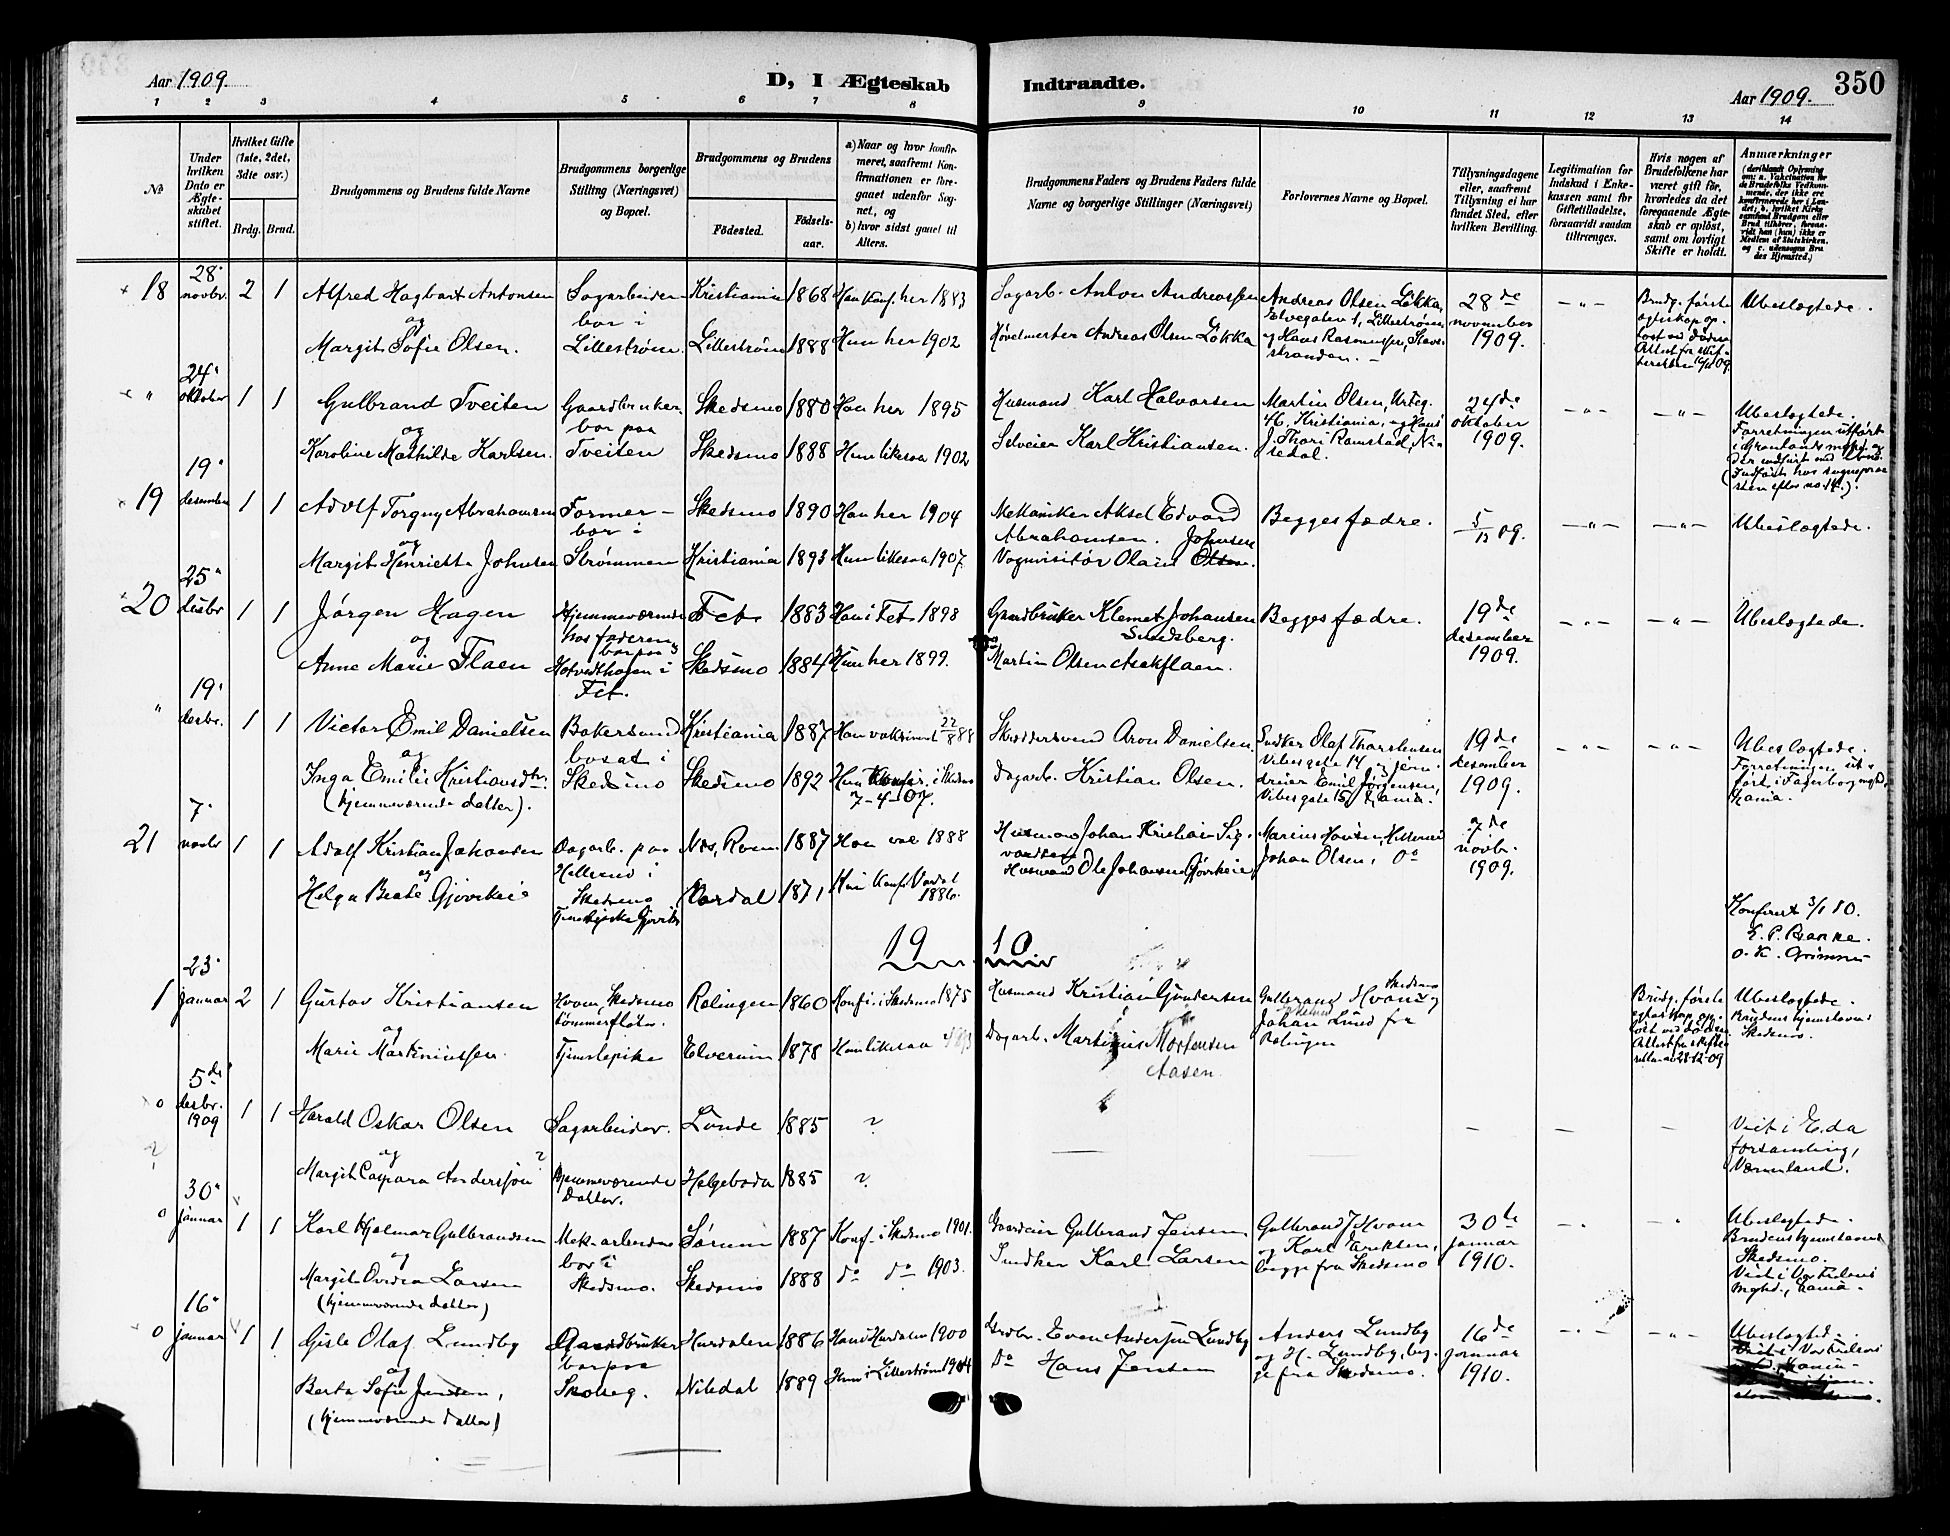 Aar 1909.
D, I Ægteskab Indtraadte.
350
Aar 1909.
1 2 3 4 5 6 7 8 9 10 11 12 13 14
No
Under hvilken Dato er Ægteskabet stiftet.
Hvilket Gifte (1ste, 2det, 3die osv.)
Brdg. Brud.
Brudgommens og Brudens fulde Navne
Brudgommens borgerlige Stilling (Næringsvei) og Bopæl.
Brudgommens og Brudens
Fødested.
Fødselsaar.
a) Naar og hvor konfirmeret, saafremt Konfirmationen er foregaaet udenfor Sognet, og
b) hvor sidst gaaet til Alters.
Brudgommens Faders og Brudens Faders fulde Navne og borgerlige Stillinger (Næringsvei)
Forlovernes Navne og Bopæl.
Tillysningsdagene eller, saafremt Tillysning ei har fundet Sted, efter hvilken Bevilling.
Legitimation for Indskud i Enkekassen samt for Giftetilladelse, forsaavidt saadan tiltrænges.
Hvis nogen af Brudefolkene har været gift før, hvorledes da det foregaaende Ægteskab er opløst, samt om lovligt Skifte er holdt.
Anmærkninger
18 28' novbr. 2 1
Alfred Hagbart Antonsen og Margit Sofie Olsen.
Sagarbeider bor i Lillestrøm.
Kristiania 1868 Han konf. her 1883
Lillestrøm 1888 Hun her 1902
Sagarb. Anton Andreassen
Høvelmester Andreas Olsen Løkka
Andreas Olsen Løkka, Elvegaten 1, Lillestrøm
28de november 1909.
Ubeslægtede.
" 24' oktober 1 1
Gulbrand Tveiten og Karoline Mathilde Karlsen.
Gaardbruker bor paa Tveiten
Skedsmo 1880 Han her 1895
Skedsmo 1888 Hun likesaa 1902
Husmand Karl Halvorsen
Selveier Karl Kristiansen.
Martin Olsen, Urteg. 46, Kristiania, og Hans J. Thori Ramstad, Nitedal.
24de oktober 1909.
Ubeslægtede.
Forretningen utført i Grønlands mghd. og
19 19' desember 1 1
Adolf Torgny Abrahamsen og Margit Henriette Johnsen
Former - bor i Strømmen
Skedsmo 1890 Han her 1904
Kristiania 1893 Hun likesaa 1907.
Mekaniker Aksel Edvard Abrahamsen.
Vognvisitør Olaus Olsen. Johnsen
Begges fædre.
5/12 09.
Ubeslægtede.
20 25' desbr 1 1
Jørgen Hagen og Anne Marie Flaen
Hjemmeværende hos faderen, bor paa Hotvedthagen i Fet.
Fet 1883 Han i Fet 1898
Skedsmo 1884 Hun her 1899.
Gaardbruker Klemet Johansen Sundsberg.
Martin Olsen Asakflaen.
Begges fædre.
19de desember 1909.
Ubeslægtede.
" 19' desbr. 1 1
Victor Emil Danielsen og Inga Emilie Kristiansdtr. (hjemmeværende datter).
Bakersvend bosat i Skedsmo
Kristiania 1887 Han vaksinert 22/8 88
Skedsmo 1892 Hun konfir. i Skedsmo 7-4-07.
Skræddersvend Aron Danielsen.
Dagarb. Kristian Olsen.
Snedker Olaf Thorstensen Vibesgate 14 og jerndreier Emil Jørgensen, Vibesgate 15, Kania.
19de desember 1909.
Ubeslægtede.
Forretningen utført i Fagerborg mghd. Kania.
21 7' novbr 1 1
Adolf Kristian Johansen og Helga Beate Gjøvikeie
Dagarb. paa Hellerud i Skedsmo
Tjenestepike Gjøvik
Nes, Rom. 1887 Han vac 1888
Vardal 1871, Hun konf. Vardal 1886.
Husmand Johan Kristian Sigvardsen
Husmand Ole Johansen Gjøvikeie
Johan Olsen, do
7de novbr. 1909.
Konferert 3/1 10.
19 10
1 23' januar 2 1
Gustav Kristiansen og Marie Martiniussen.
Hvam, Skedsmo tømmerfløter.
Tjenestepike
Rælingen 1860 Konf. i Skedsmo 1875
Elverum 1878 Hun likesaa
Husmand Kristian Gundersen
Dagarb. Martinius Mortensen Aasen.
Gulbrand Hvam, Skedsmo og Johan Lund fra Rælingen
Ubeslægtede.
Brudens hjemstavn: Skedsmo.
0 5de desbr. 1909 1 1
Harald Oskar Olsen og Margit Caspara Andersson ?
Sagarbeider.
Hjemmeværende datter.
Lunde 1885 ?
Helgeboda 1885 ?
Viet i Eda forsamling, Værmland.
0 30' januar 1 1
Karl Hjalmar Gulbrandsen og Margit Ovidia Larsen (hjemmeværende datter)
Mek. arbeider bor i Skedsmo.
Sørum 1887 Konf. i Skedsmo 1901.
Skedsmo 1888 do do 1903.
Gaardeier Gulbrand Jensen
Snedker Karl Larsen
Gulbrand J. Hvam og Karl Eriksen, begge fra Skedsmo
30te januar 1910.
Ubeslægtede.
Brudens hjemstavn Skedsmo.
Viet i Vor Frelsers mghd., Kania.
0 16' januar 1 1
Gisle Olaf Lundby og Berta Sofie Jensen, (hjemmeværende datter)
Gaardbruker bor paa Skoleg.
Hurdalen 1886 Han i Hurdalen 1900
Nitedal 1889 Hun i Lillestrøm 1904
Grdbr. Even Andersen Lundby
Do Hans Jensen
Anders Lundby og H. Lundby, begge fra Skedsmo.
16de januar 1910.
Ubeslægtede.